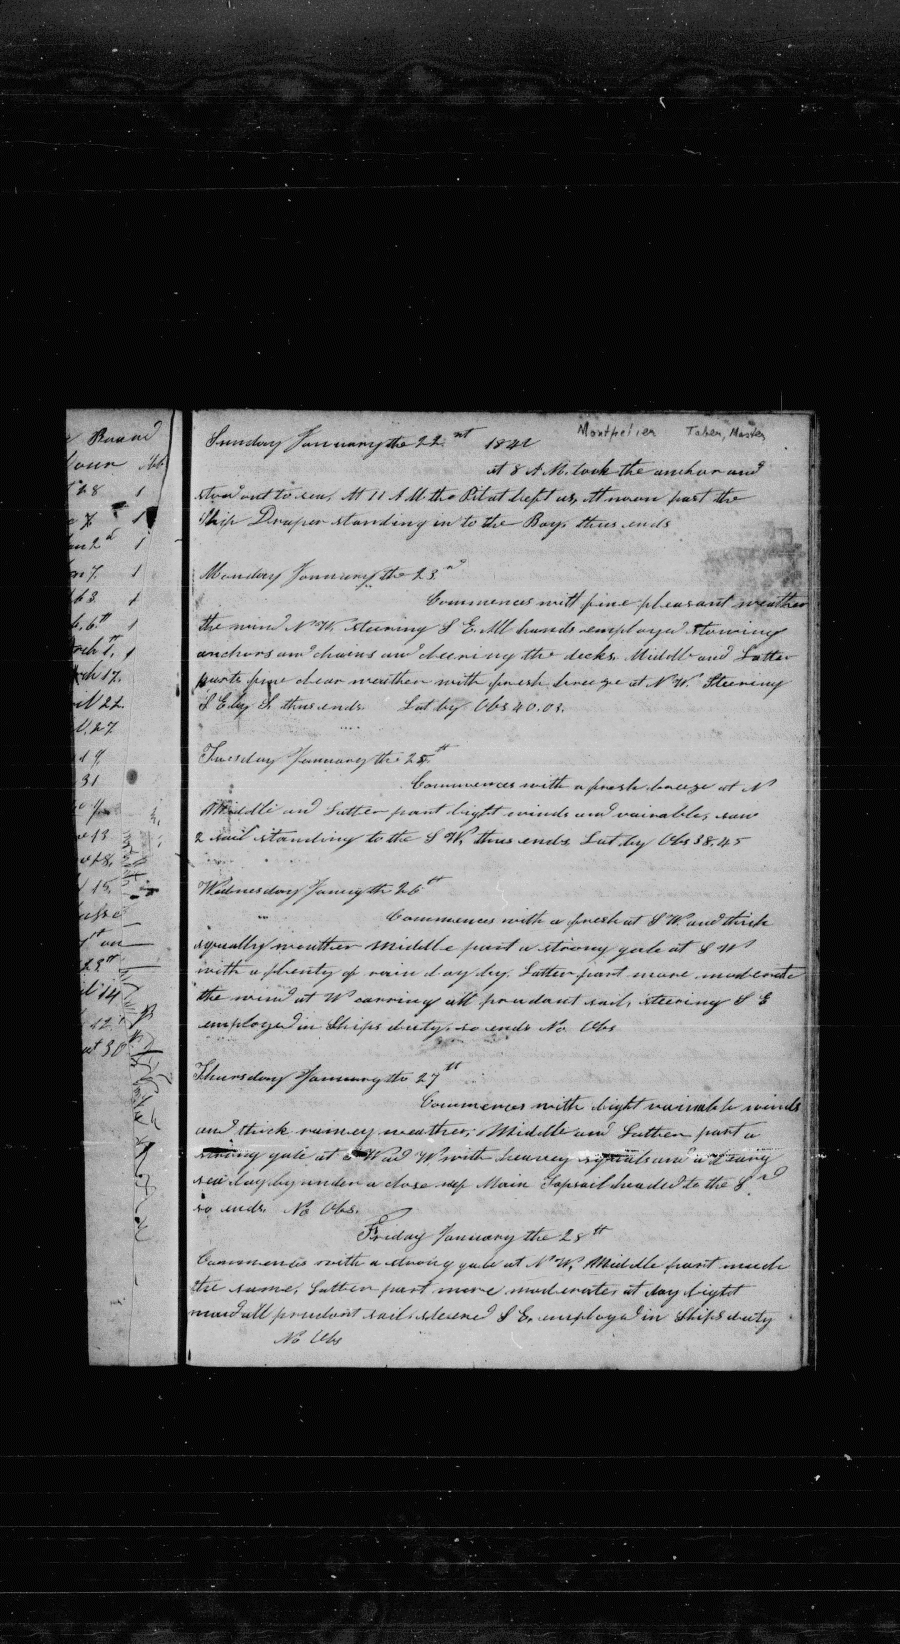 Round
Mob
28 1
1
2d 1
7. 1
63 1
6th 1
1
17.
22
27
9
31
13
18.
15.
23d
14
30
Montpelier Taber, Master
Sunday January the 22nt 1842
at 8 A.M. took the anchor and
stood out to sea, At 11 A M the Pilot left us, At noon past the
Ship Draper standing in to the Bay, thus ends
Monday January the 23rd
Commences with fine pleasant weather
the wind N W. steering S E. All hands employed stowing
anchors and chains and cleering the decks. Middle and Latter
parts fine clear weather with fresh breeze at N W. Steering
S E by S. thus ends. Lat by Obs 40.03.
Tuesday January the 25th
Commences with a fresh breeze at N
Middle and Latter part light winds and vairable, saw
2 sail standing to the S W, thus ends Lat by Obs 38.45
Wednesday January the 26th
Commences with a fresh at S W. and thick
squally weather Middle part a strong gale at S W
with a plenty of rain lay by. Latter part more moderate
the wind at W carring all prudant sail, steering S E
employed in Ships duty, so ends No Obs
Thursday January the 27th
Commences with light vairable winds
and thick rainey weather, Middle and Latter part a
strong gale at S W and W with heavey squals and a heavy
sea lay by under a close reef Main Topsail headed to the Sd
so ends. No Obs.
Friday January the 28th
Commences with a strong gale at N W, Middle part much
the same, Latter part more moderate, at day light
maid all prudent sail, steered S E, employed in Ships duty
No Obs